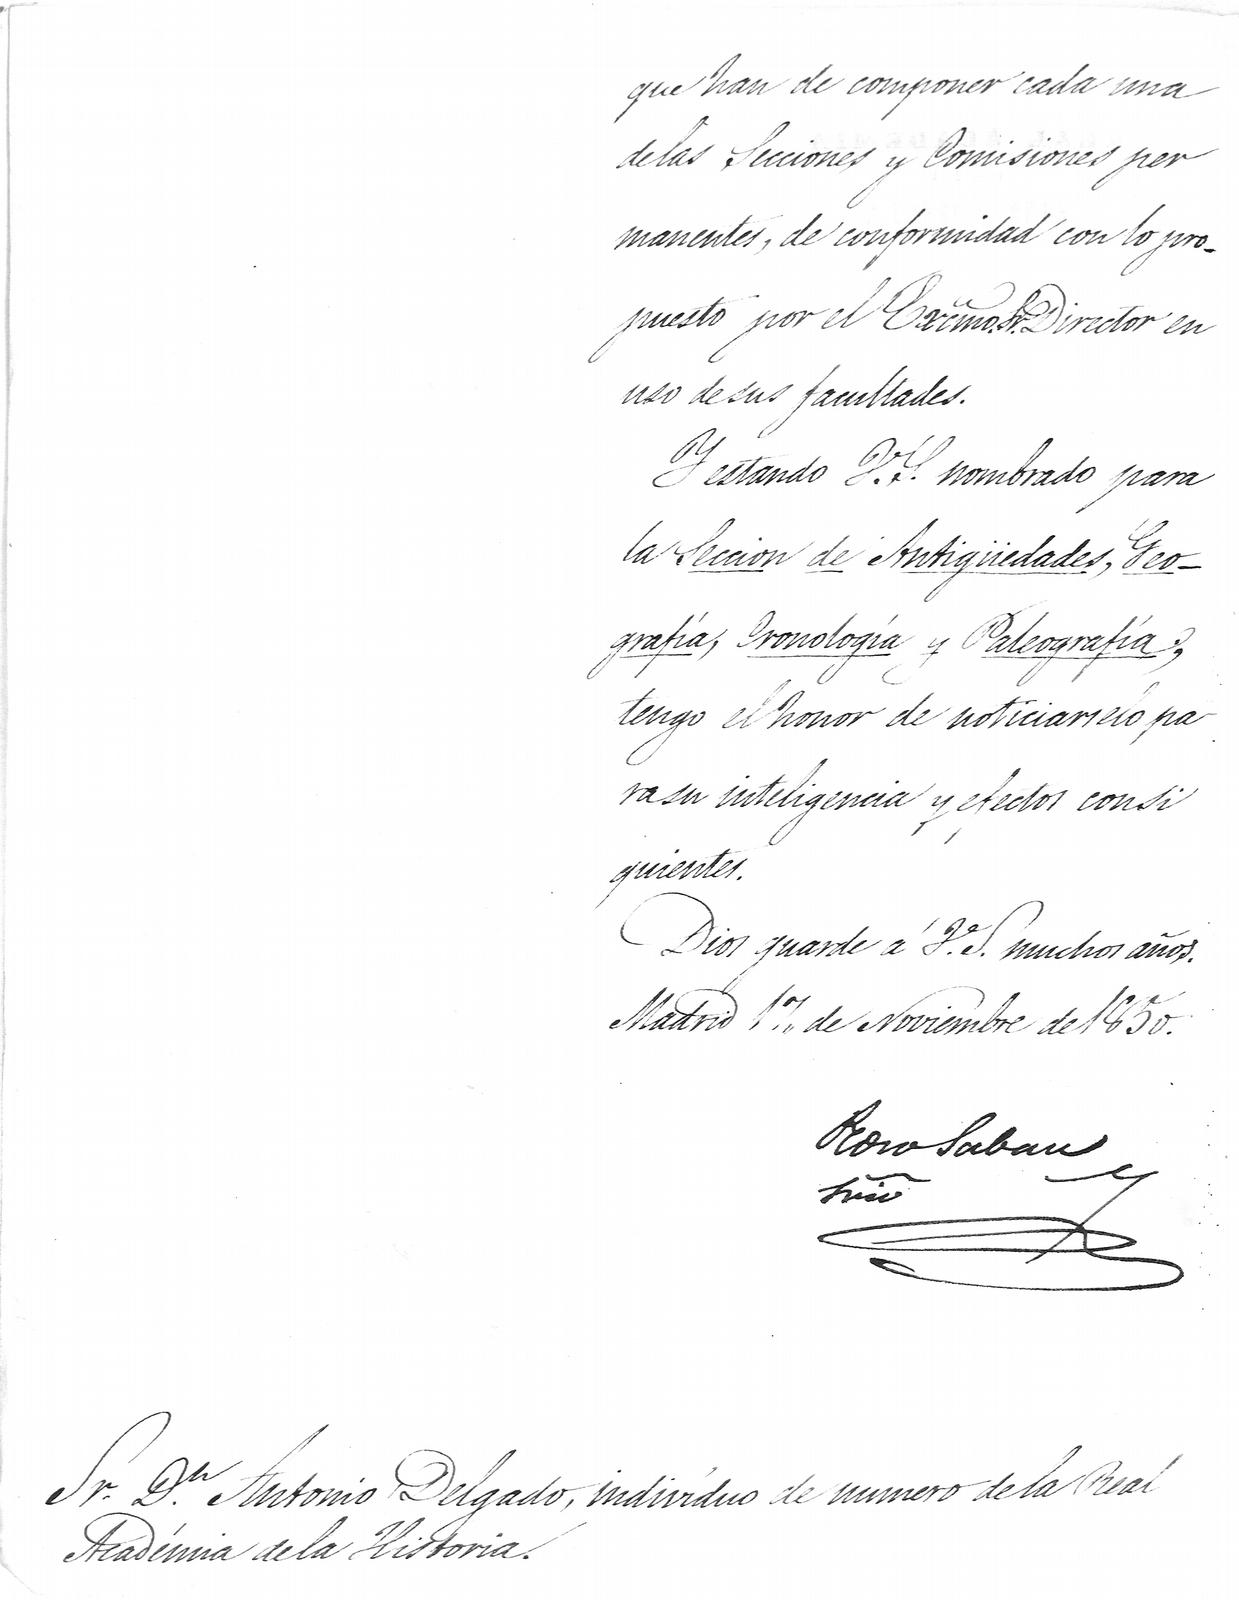 que han de componer cada una
de las Secciones y Comisiones per
manentes, de conformidad con lo pro-
puesto por el Excmo. Sr. Director en
uso de sus facultades.
Y estando V.S. nombrado para
la Seccion de Antigüedades, Geo-
grafía, Cronología y Paleografía,
tengo el honor de noticiarselo pa
ra su inteligencia y efectos consi
guientes.
Dios guarde á V.S. muchos años.
Madrid 17 de Noviembre de 1850.
Pedro Sabau
Srio
Sr. Dn. Antonio Delgado, indivíduo de numero de la Real
Académia de la Historia.